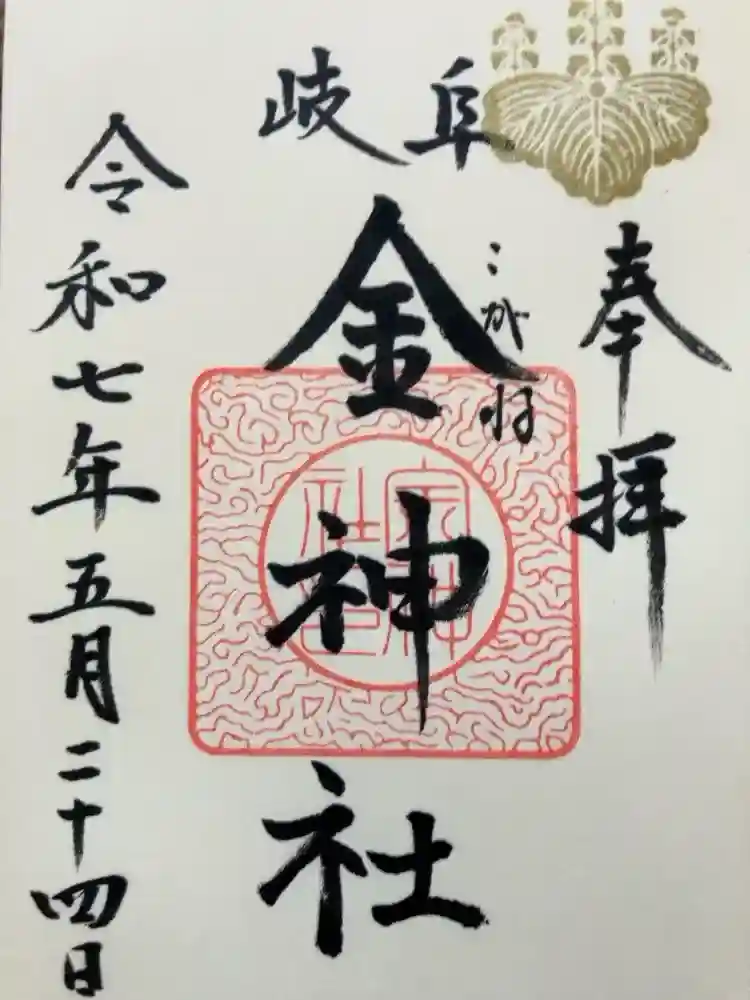 奉拝
岐阜
こがね
金神社
令和七年五月二十四日